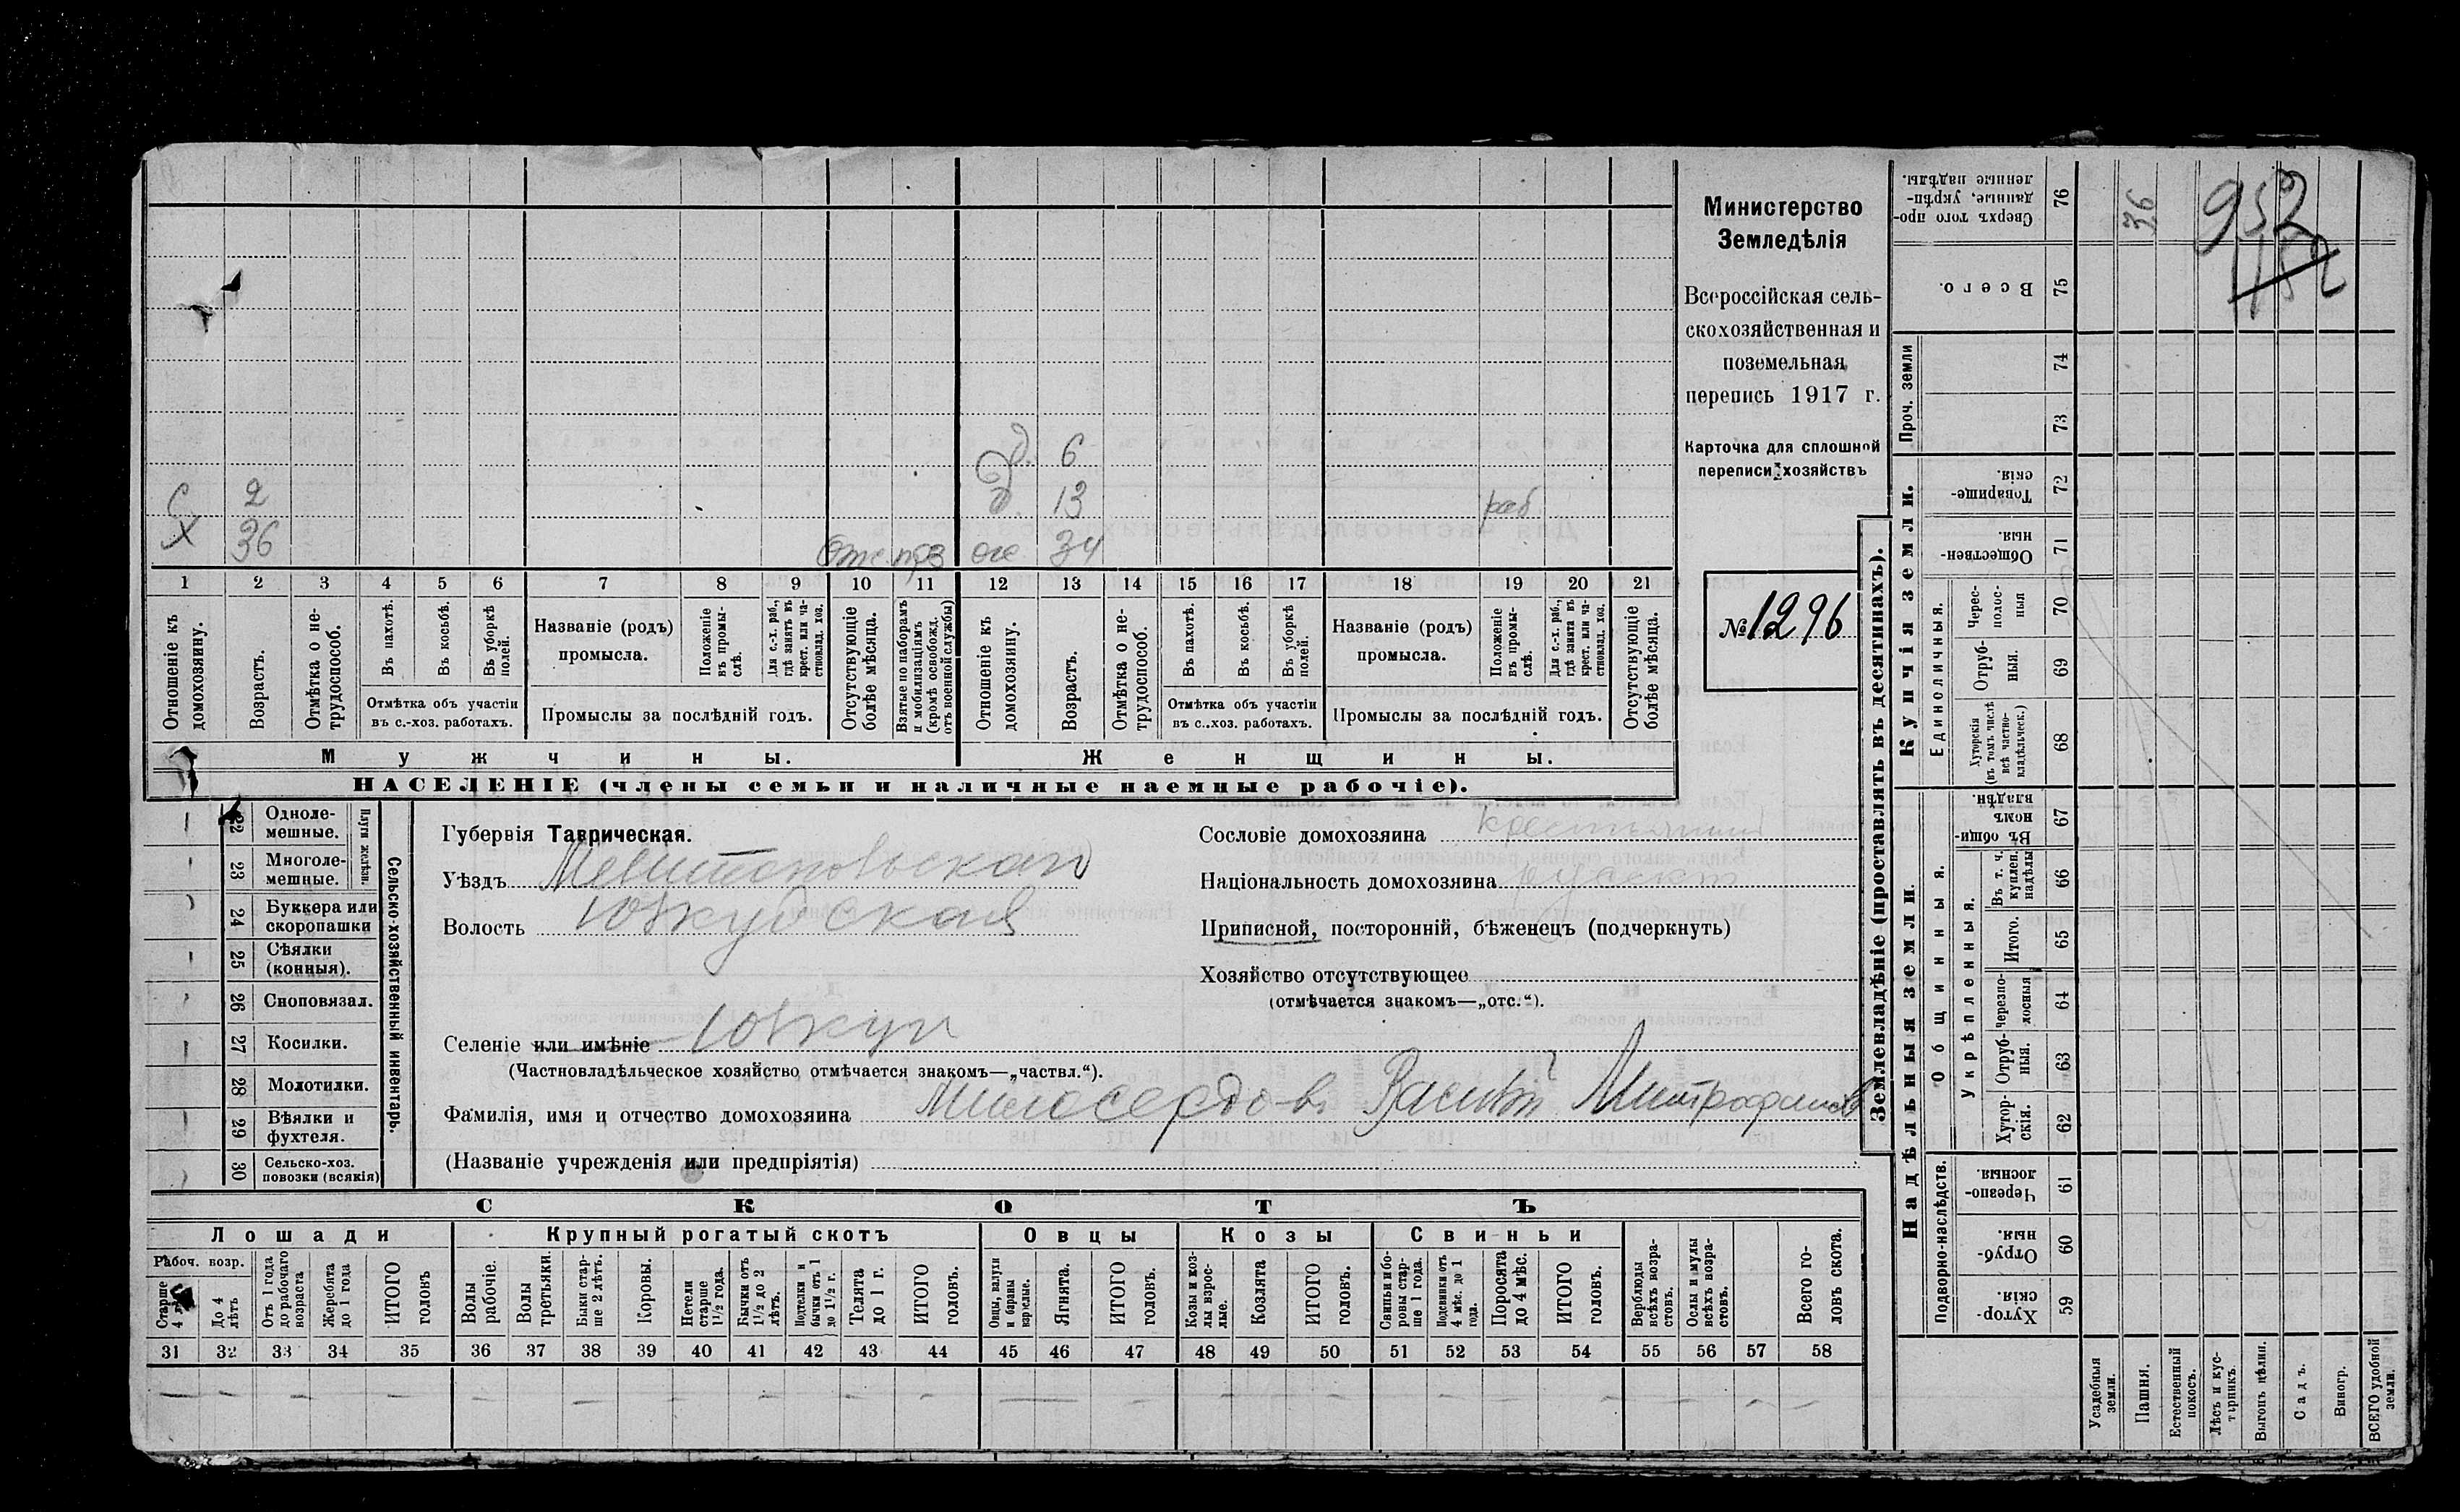 Министерство
Земледѣлія
Всероссійская сель-
скохозяйственная и
поземельная
перепись 1917 г.
Карточка для сплошной
переписи хозяйствъ
№ 1296
д. 6
С 2 д. 13 раб
Х 36 34
1 2 3 4 5 6 7 8 9 10 11 12 13 14 15 16 17 18 19 20 21
Отношеніе къ домохозяину.
Возрастъ.
Отмѣтка о не-трудоспособ.
Въ пахотѣ.
Въ косьбѣ.
Въ уборкѣ полей.
Отмѣтка объ участіи въ с.-хоз. работахъ.
Названіе (родъ) промысла.
Положеніе въ промы-слѣ.
Для с.-х. раб., гдѣ занятъ въ крест. или ча-стновлад. хоз.
Промыслы за послѣдній годъ.
Отсутствующіе болѣе мѣсяца.
Взятые по наборамъ и мобилизаціямъ (кромѣ освобожд. отъ военной службы)
Отношеніе къ домохозяину.
Возрастъ.
Отмѣтка о не-трудоспособ.
Въ пахотѣ.
Въ косьбѣ.
Въ уборкѣ полей.
Отмѣтка объ участіи въ с.-хоз. работахъ.
Названіе (родъ) промысла.
Положеніе въ промы-слѣ.
Для с.-х. раб., гдѣ занята въ крест. или ча-стновлад. хоз.
Промыслы за послѣдній годъ.
Отсутствующіе болѣе мѣсяца.
Мужчины. Женщины.
НАСЕЛЕНІЕ (члены семьи и наличные наемные рабочіе).
22 Одноле-мешные.
23 Многоле-мешные.
Плуги желѣзн.
24 Буккера или скоропашки
25 Сѣялки (конныя).
26 Сноповязал.
27 Косилки.
28 Молотилки.
29 Вѣялки и фухтеля.
30 Сельско-хоз. повозки (всякія)
Сельско-хозяйственный инвентарь.
Губернія Таврическая.
Уѣздъ Мелитопольскай
Волость Юзкуйская
Селеніе или имѣніе Юзкуи
(Частновладѣльческое хозяйство отмѣчается знакомъ—„частвл.“).
Фамилія, имя и отчество домохозяина Милосердовъ Василій Митрофанов
(Названіе учрежденія или предпріятія)
Сословіе домохозяина крестьянин
Національность домохозяина русскій
Приписной, посторонній, бѣженецъ (подчеркнуть)
Хозяйство отсутствующее
(отмѣчается знакомъ—„отс.“).
СКОТЪ
Лошади Крупный рогатый скотъ Овцы Козы Свиньи
Рабоч. возр.
Старше 4 л.
До 4 лѣтъ
Отъ 1 года до рабочаго возраста
Жеребята до 1 года
ИТОГО головъ
Волы рабочіе.
Волы третьяки.
Быки стар-ше 2 лѣтъ.
Коровы.
Нетели старше 1½ года.
Бычки отъ 1½ до 2 лѣтъ.
Подтелки и бычки отъ 1 до 1½ г.
Телята до 1 г.
ИТОГО головъ.
Овцы, валухи и бараны взрослые.
Ягнята.
ИТОГО головъ.
Козы и коз-лы взрос-лые.
Козлята
ИТОГО головъ.
Свиньи и бо-ровы стар-ше 1 года.
Подсвинки отъ 4 мѣс. до 1 года.
Поросята до 4 мѣс.
ИТОГО головъ.
Верблюды всѣхъ возра-стовъ.
Ослы и мулы всѣхъ возра-стовъ.
Всего го-ловъ скота.
31 32 33 34 35 36 37 38 39 40 41 42 43 44 45 46 47 48 49 50 51 52 53 54 55 56 57 58
Землевладѣніе (проставлять въ десятинахъ).
Сверхъ того про-данные, укрѣп-ленные надѣлы. 76 36
952
152
Всего. 75
Проч. земли
74
73
Купчія земли.
Товарище-скія. 72
Обществен-ныя. 71
Единоличныя.
Черес-полос-ныя 70
Отруб-ныя. 69
Хуторскія (въ томъ числѣ всѣ частно-владѣльческ.) 68
Надѣльныя земли.
Общинныя.
Въ общин-номъ владѣн. 67
Укрѣпленныя.
Въ т. ч. куплен. надѣлы 66
Итого. 65
Черезпо-лосныя 64
Отруб-ныя. 63
Хутор-скія. 62
Подворно-наслѣдств.
Черезпо-лосныя 61
Отруб-ныя. 60
Хутор-скія. 59
Усадебныя земли.
Пашня.
Естественный покосъ.
Лѣсъ и кус-тарникъ.
Выгонъ цѣлин.
Садъ.
Виногр.
ВСЕГО удобной земли.